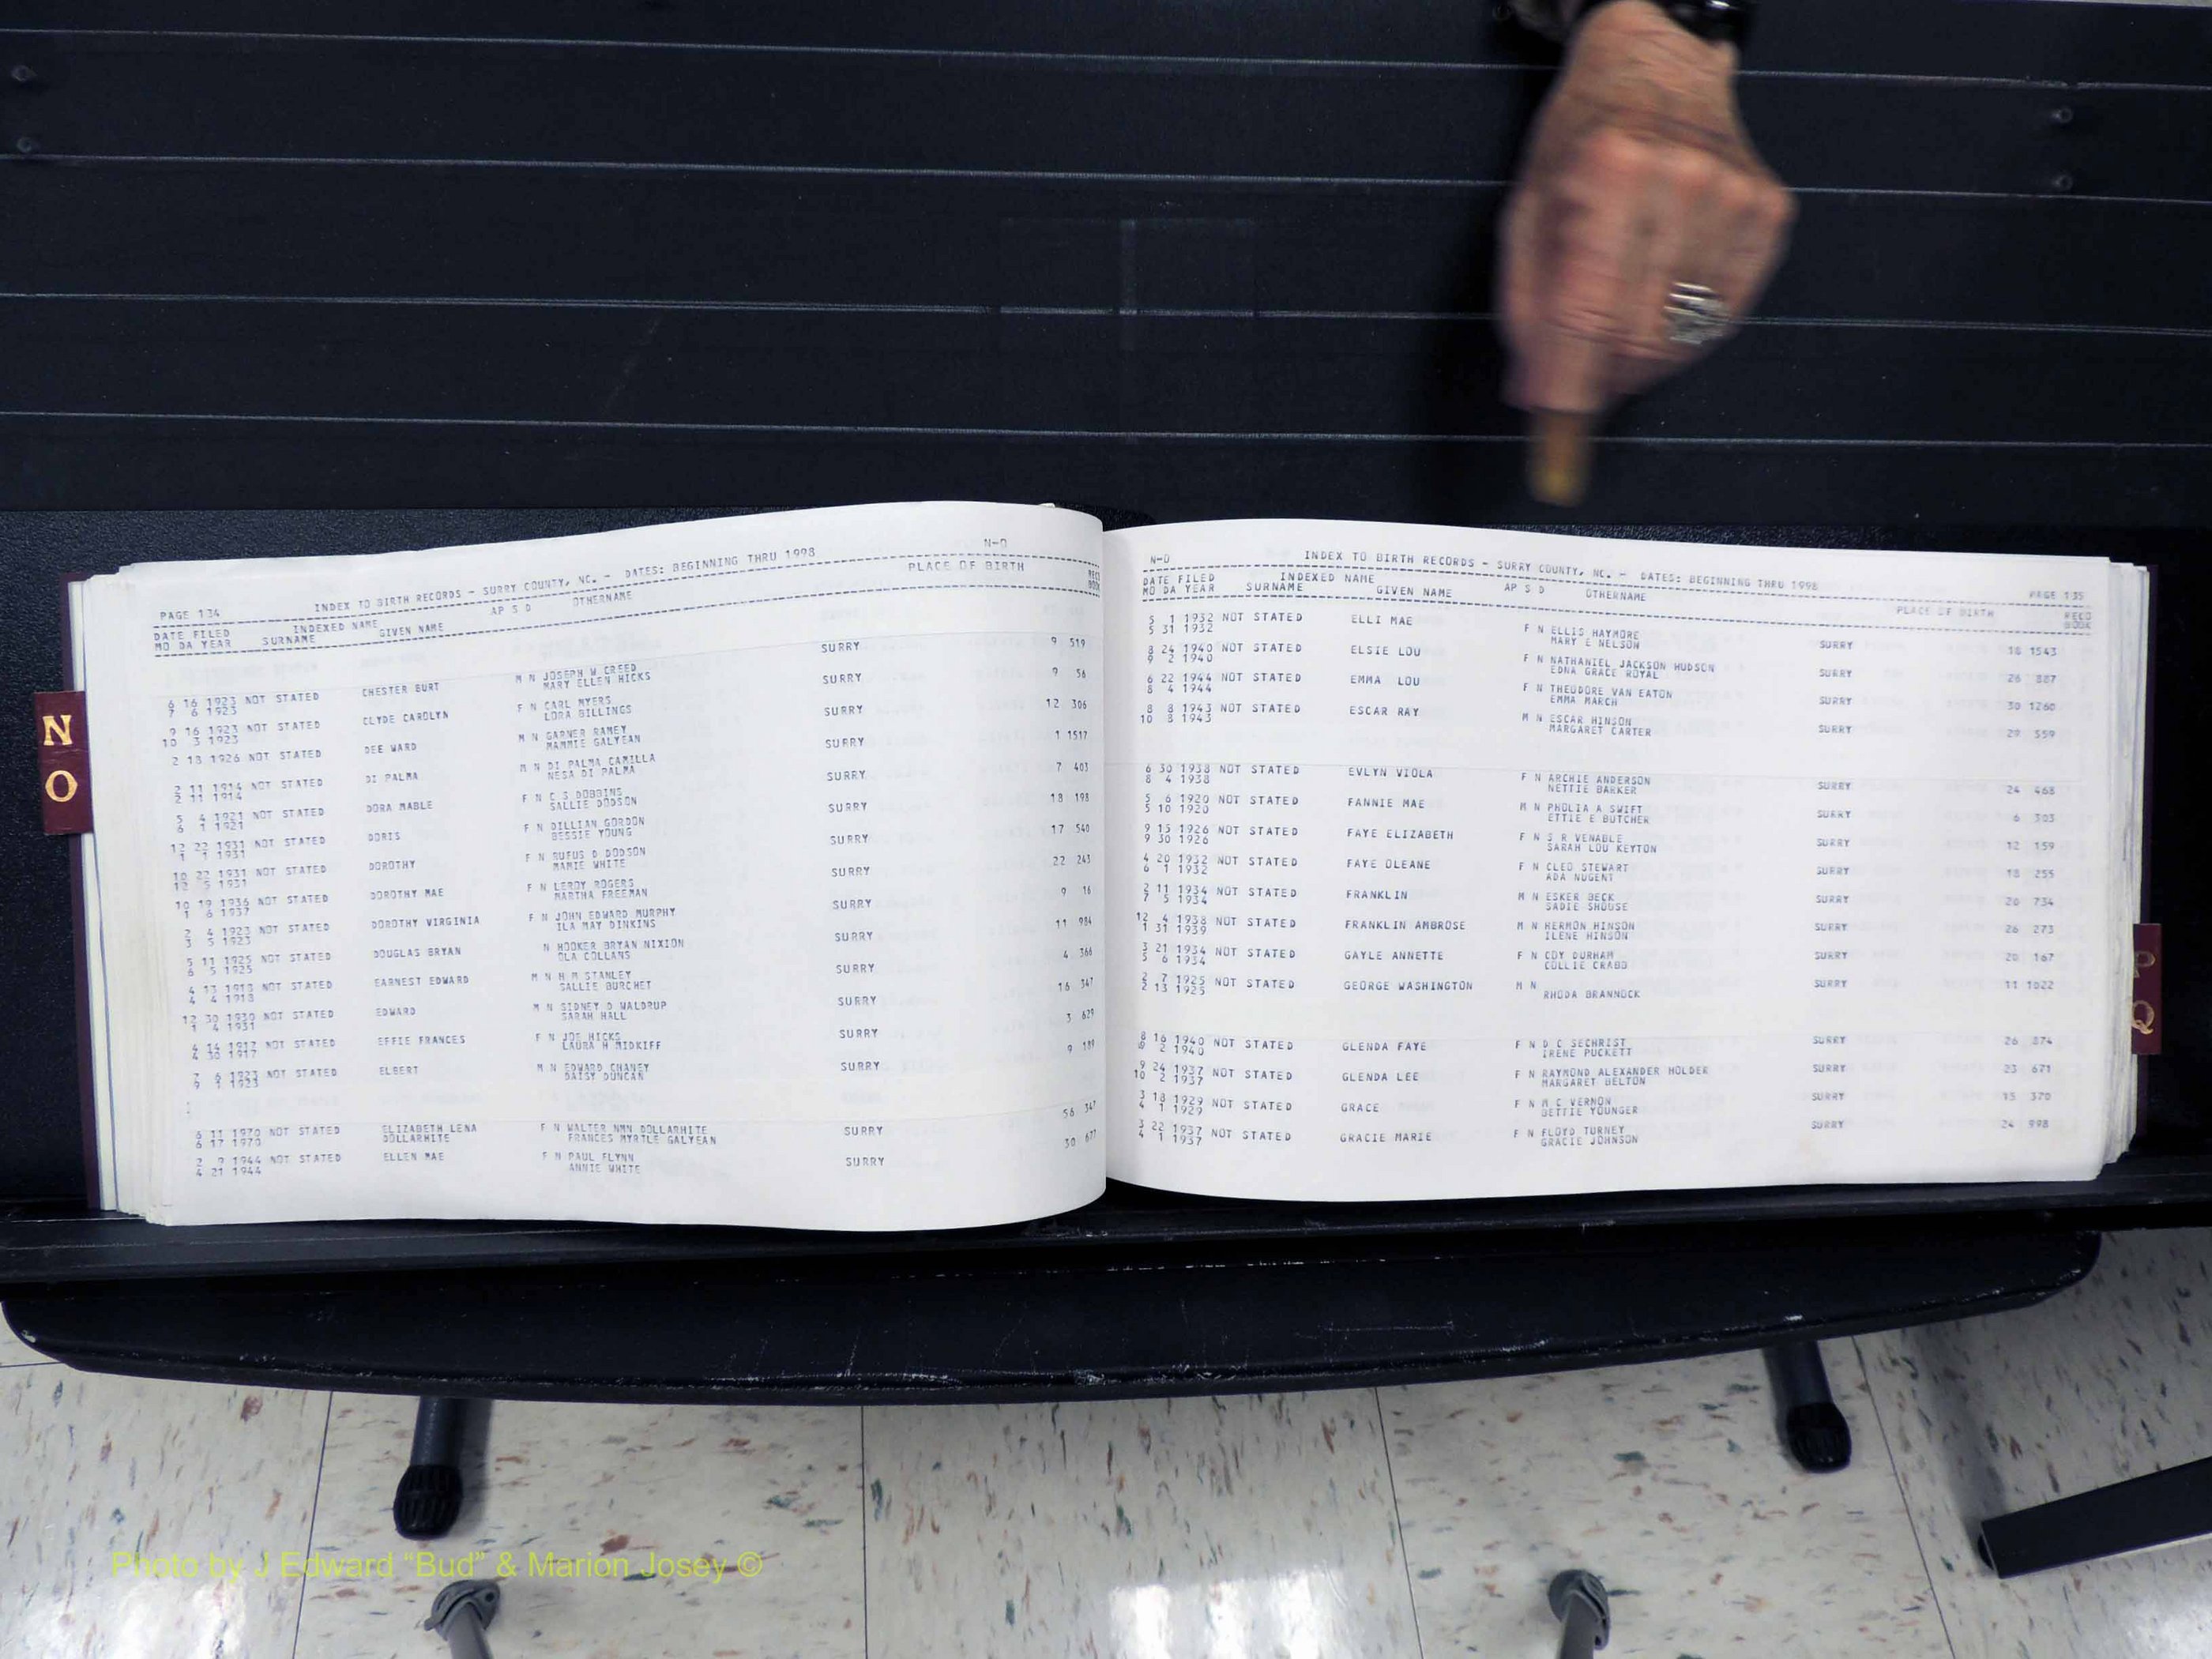 N
O
PAGE 134 INDEX TO BIRTH RECORDS - SURRY COUNTY, NC. - DATES: BEGINNING THRU 1998 N-O
DATE FILED INDEXED NAME AP S D OTHERNAME PLACE OF BIRTH
MO DA YEAR SURNAME GIVEN NAME
6 16 1923 NOT STATED CHESTER BURT M N JOSEPH W CREED SURRY 9 519
7 6 1923 MARY ELLEN HICKS
9 16 1923 NOT STATED CLYDE CAROLYN F N CARL MYERS SURRY 9 56
10 3 1923 LORA BILLINGS
2 18 1926 NOT STATED DEE WARD M N GARNER RAMEY SURRY 12 306
MAMMIE GALYEAN
2 11 1914 NOT STATED DI PALMA M N DI PALMA CAMILLA SURRY 1 1517
2 11 1914 NESA DI PALMA
5 4 1921 NOT STATED DORA MABLE F N C S DOBBINS SURRY 7 403
6 1 1921 SALLIE DODSON
12 22 1931 NOT STATED DORIS F N DILLIAN GORDON SURRY 18 198
1 1 1931 BESSIE YOUNG
10 22 1931 NOT STATED DOROTHY F N RUFUS D DODSON SURRY 17 540
12 5 1931 MAMIE WHITE
10 19 1936 NOT STATED DOROTHY MAE F N LEROY ROGERS SURRY 22 243
1 6 1937 MARTHA FREEMAN
2 4 1923 NOT STATED DOROTHY VIRGINIA F N JOHN EDWARD MURPHY SURRY 9 16
3 5 1923 ILA MAY DINKINS
5 11 1925 NOT STATED DOUGLAS BRYAN N HOOKER BRYAN NIXION SURRY 11 984
6 5 1925 OLA COLLANS
4 13 1918 NOT STATED EARNEST EDWARD M N H M STANLEY SURRY 4 366
4 4 1918 SALLIE BURCHET
12 30 1930 NOT STATED EDWARD M N SIDNEY D WALDRUP SURRY 16 347
1 4 1931 SARAH HALL
4 14 1917 NOT STATED EFFIE FRANCES F N JOE HICKS SURRY 3 629
4 30 1917 LAURA H MIDKIFF
7 6 1923 NOT STATED ELBERT M N EDWARD CHANEY SURRY 9 189
9 1923 DAISY DUNCAN
6 11 1970 NOT STATED ELIZABETH LENA F N WALTER NMN DOLLARHITE SURRY 56 347
6 17 1970 DOLLARHITE FRANCES MYRTLE GALYEAN
2 9 1944 NOT STATED ELLEN MAE F N PAUL FLYNN SURRY 30 677
4 21 1944 ANNIE WHITE
N-O INDEX TO BIRTH RECORDS - SURRY COUNTY, NC. - DATES: BEGINNING THRU 1998 PAGE 135
DATE FILED INDEXED NAME AP S D OTHERNAME PLACE OF BIRTH RECD
MO DA YEAR SURNAME GIVEN NAME BOOK
5 1 1932 NOT STATED ELLI MAE F N ELLIS HAYMORE SURRY 18 1543
5 31 1932 MARY E NELSON
8 24 1940 NOT STATED ELSIE LOU F N NATHANIEL JACKSON HUDSON SURRY 26 887
9 2 1940 EDNA GRACE ROYAL
6 22 1944 NOT STATED EMMA LOU F N THEODORE VAN EATON SURRY 30 1260
8 4 1944 EMMA MARCH
8 8 1943 NOT STATED ESCAR RAY M N ESCAR HINSON SURRY 29 559
10 8 1943 MARGARET CARTER
6 30 1938 NOT STATED EVLYN VIOLA F N ARCHIE ANDERSON SURRY 24 468
8 4 1938 NETTIE BARKER
5 6 1920 NOT STATED FANNIE MAE M N PHOLIA A SWIFT SURRY 6 303
5 10 1920 ETTIE E BUTCHER
9 15 1926 NOT STATED FAYE ELIZABETH F N S R VENABLE SURRY 12 159
9 30 1926 SARAH LOU KEYTON
4 20 1932 NOT STATED FAYE OLEANE F N CLEO STEWART SURRY 18 255
6 1 1932 ADA NUGENT
2 11 1934 NOT STATED FRANKLIN M N ESKER BECK SURRY 20 734
7 5 1934 SADIE SHOUSE
12 4 1938 NOT STATED FRANKLIN AMBROSE M N HERMON HINSON SURRY 26 273
1 31 1939 ILENE HINSON
3 21 1934 NOT STATED GAYLE ANNETTE F N COY DURHAM SURRY 20 167
5 6 1934 COLLIE CRABB
2 7 1925 NOT STATED GEORGE WASHINGTON M N SURRY 11 1022
2 13 1925 RHODA BRANNOCK
8 16 1940 NOT STATED GLENDA FAYE F N D C SECHRIST SURRY 26 874
9 2 1940 IRENE PUCKETT
9 24 1937 NOT STATED GLENDA LEE F N RAYMOND ALEXANDER HOLDER SURRY 23 671
10 2 1937 MARGARET BELTON
3 18 1929 NOT STATED GRACE F N M C VERNON SURRY 15 370
4 1 1929 BETTIE YOUNGER
3 22 1937 NOT STATED GRACIE MARIE F N FLOYD TURNEY SURRY 24 998
4 1 1937 GRACIE JOHNSON
Q
Photo by J Edward “Bud” & Marion Josey ©